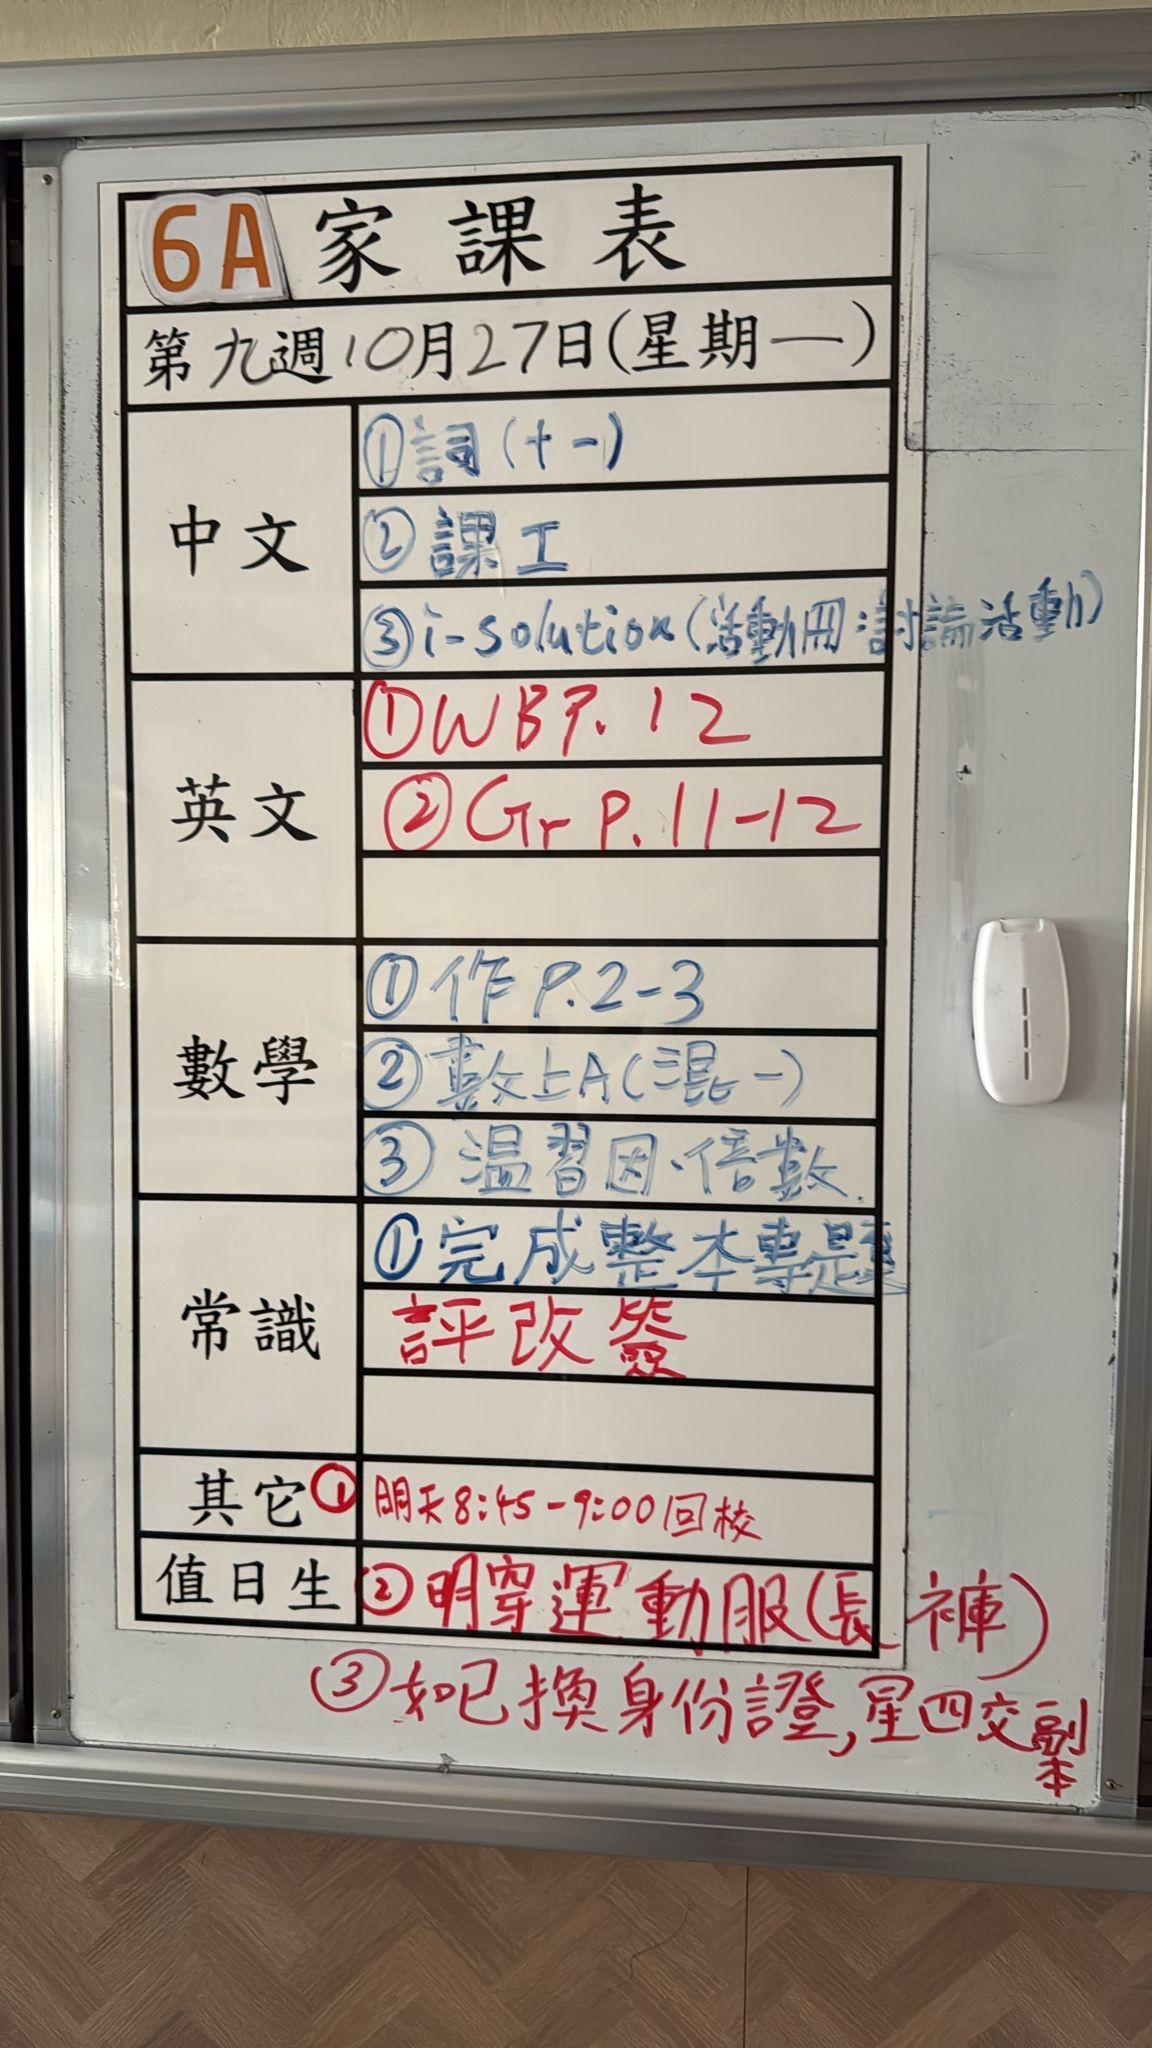 6A 家課表
第九週10月27日(星期一)
中文
①詞(十一)
②課工
③i-solution(活動冊:討論活動)
英文
①WB P.12
②Gr P.11-12
數學
①作P.2-3
②數上A(混一)
③温習因、倍數.
常識
①完成整本專題
評改簽
其它① 明天8:45-9:00回校
值日生 ②明穿運動服(長褲)
③如已換身份證,星四交副本